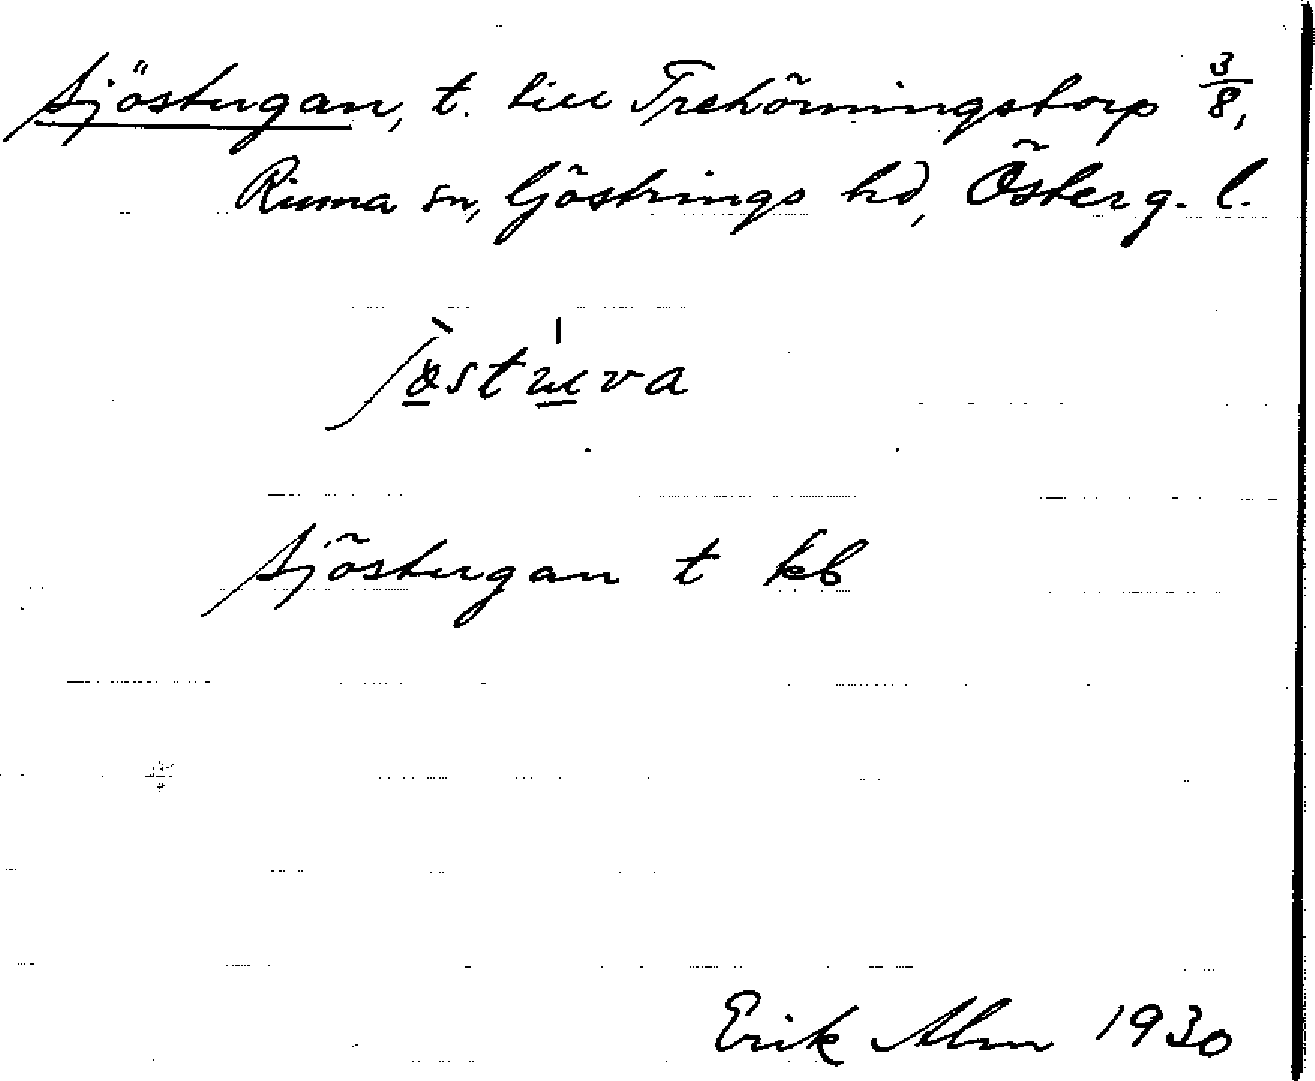 Sjöstugan, t. till Trehörningstorp 3/8,
Rinna sn, Göstrings hd, Österg. l.
Sjöstugan t kb
Erik Alm 1930